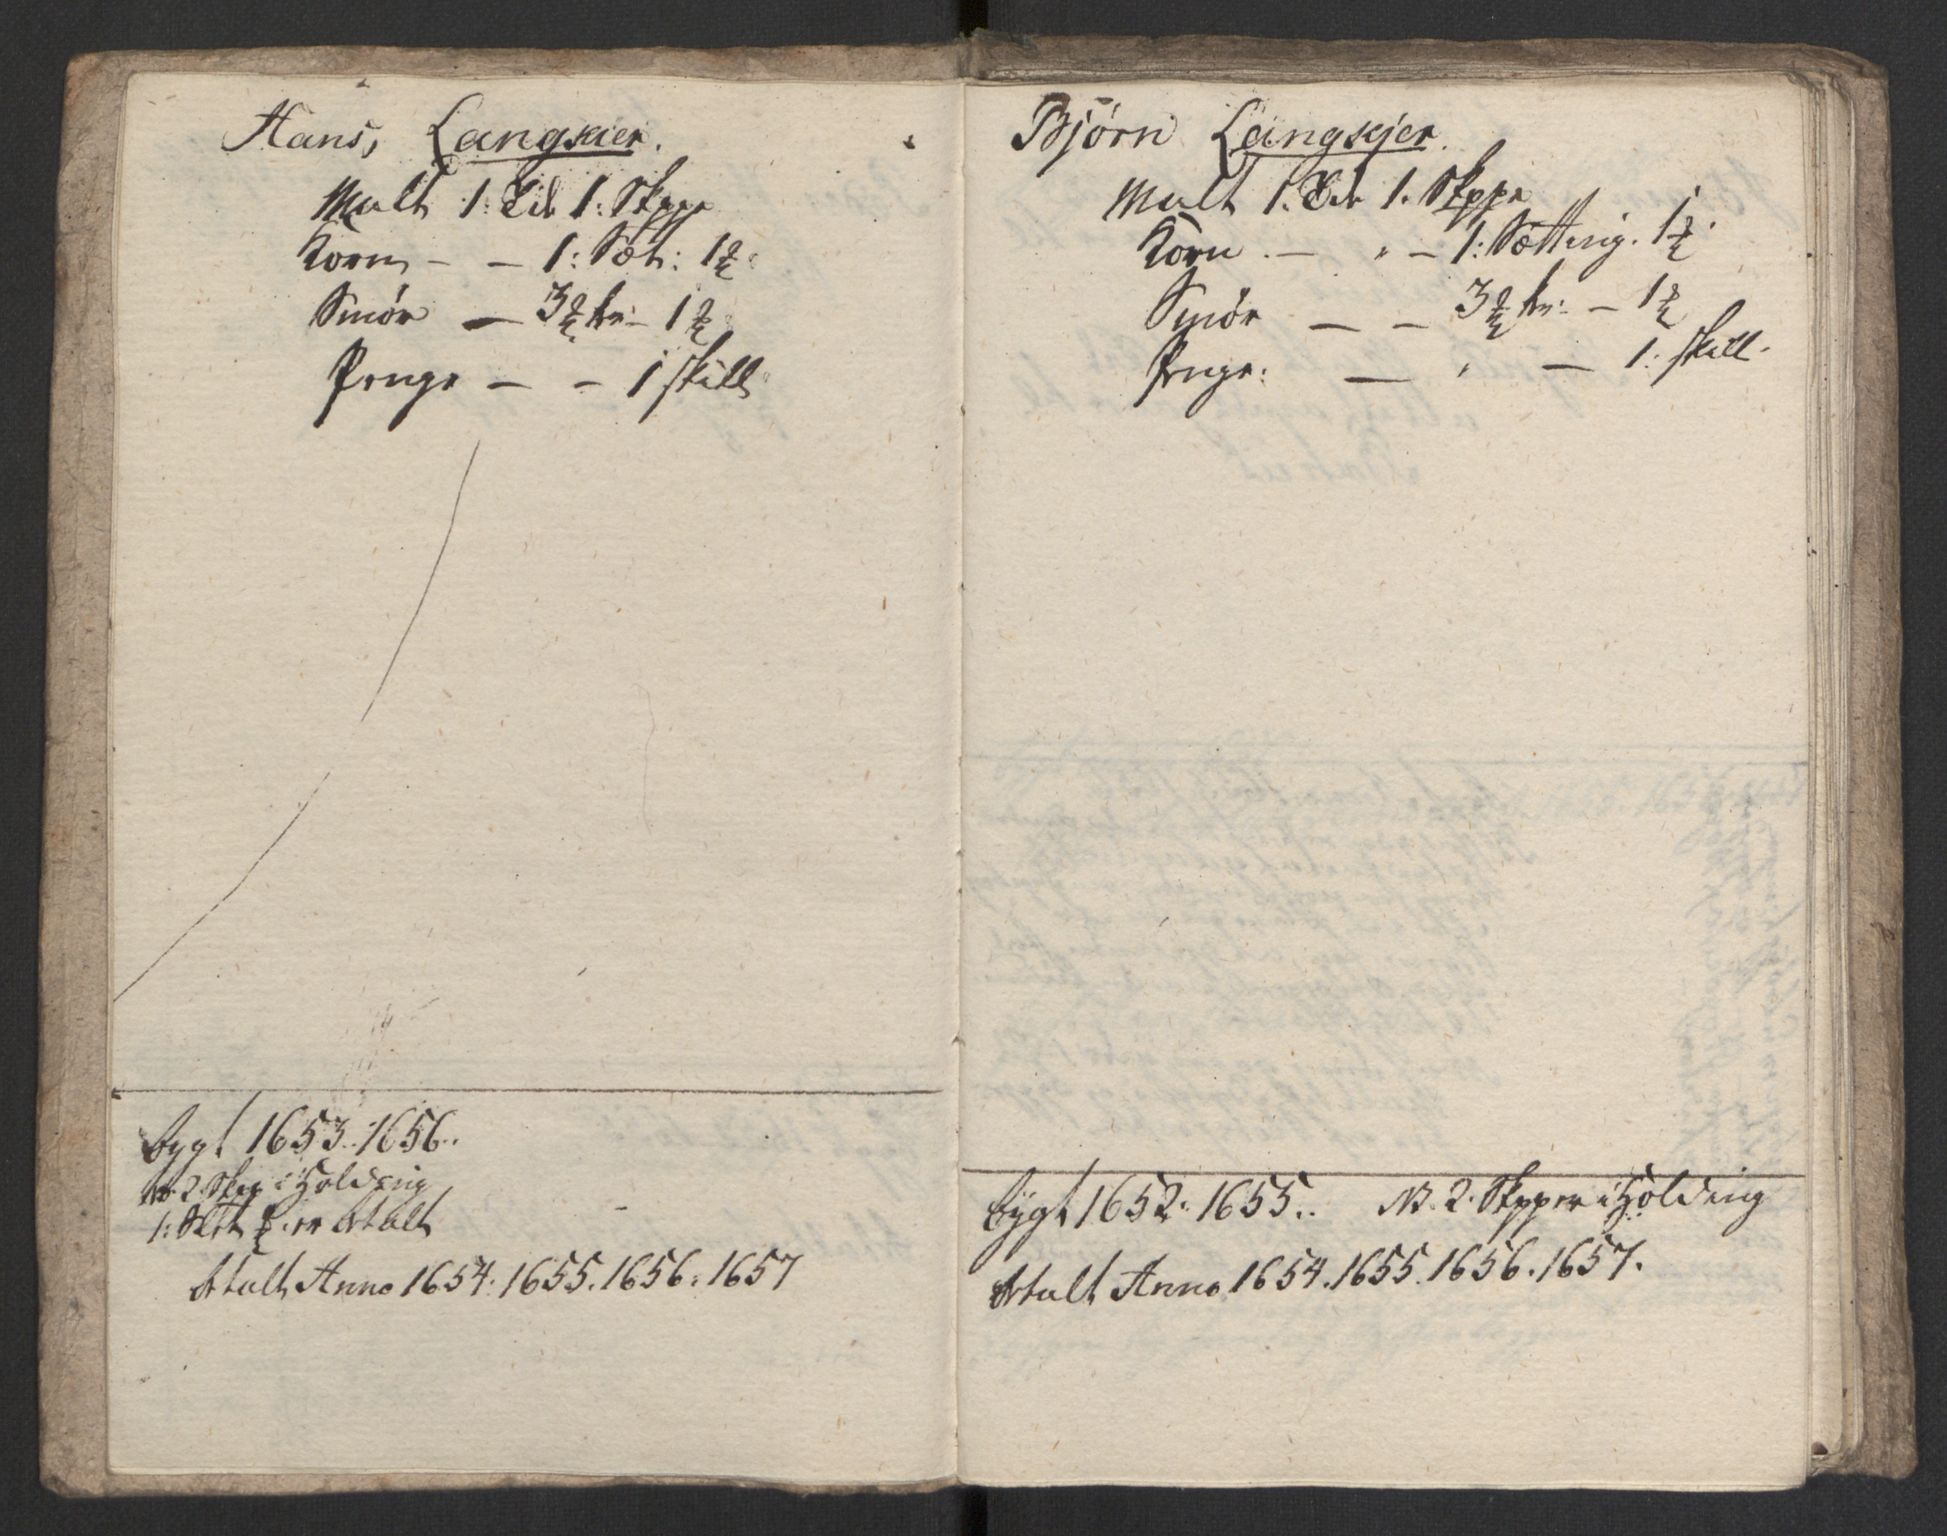 Hans, Langskier.
Malt 1: Til 1: Skppe
Korn – – 1: Sæt: 1½
Smör – 3½ kr: – 1½
Penge – – 1 skill
bygt 1653. 1656.
NB. 2 Skpp i Holding
1: er Atalt
Atalt Anno 1654. 1655. 1656. 1657
Bjørn Langskjer.
Malt 1. 1. Skppe
Korn. – " – 1: Sætting. 1½.
Smör – – 3½ kr: – 1½
Penge: – " – 1. skill.
bÿgt 1652. 1655.. NB. 2. Skpper i Holding
Atalt Anno 1654. 1655. 1656. 1657.